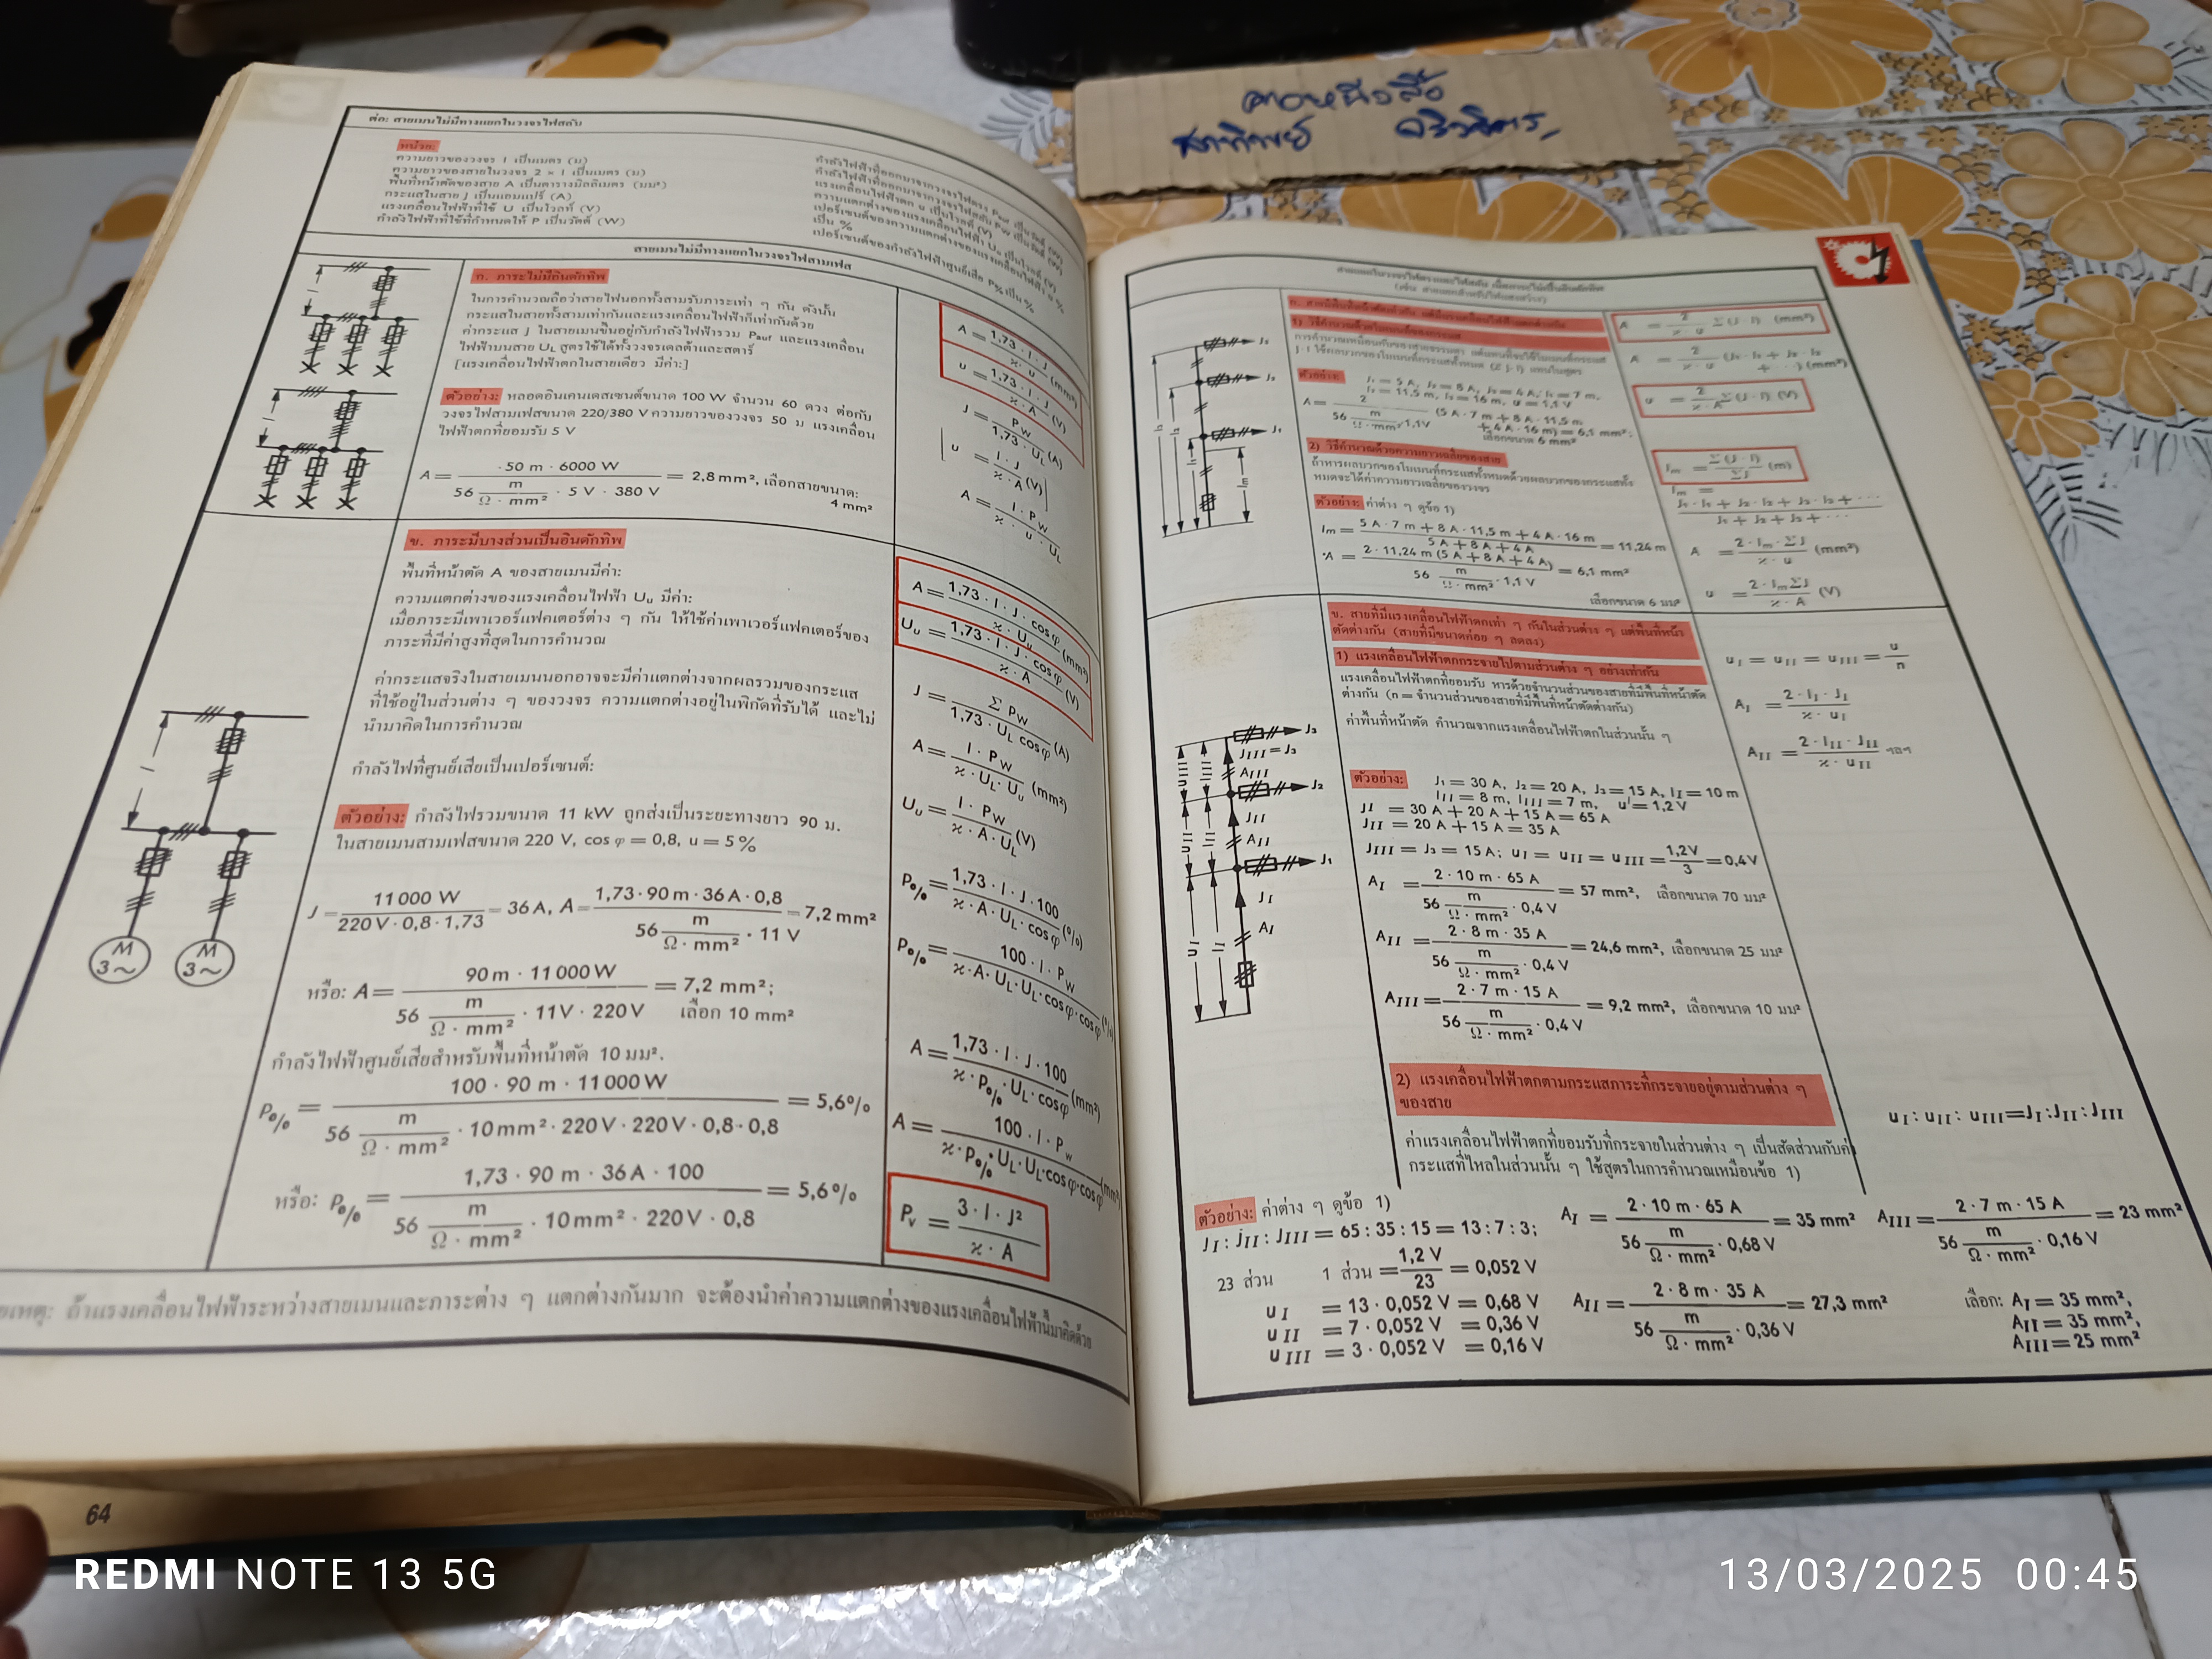 ต่อ: สายเมนไม่มีทางแยกในวงจรไฟสลับ
หน่วย:
ความยาวของวงจร l เป็นเมตร (ม)
ความยาวของสายในวงจร 2 × l เป็นเมตร (ม)
พื้นที่หน้าตัดของสาย A เป็นตารางมิลลิเมตร (มม²)
กระแสในสาย J เป็นแอมแปร์ (A)
แรงเคลื่อนไฟฟ้าที่ใช้ U เป็นโวลท์ (V)
กำลังไฟฟ้าที่ใช้ที่กำหนดให้ P เป็นวัตต์ (W)
สายเมนไม่มีทางแยกในวงจรไฟสามเฟส
ก. ภาระไม่มีอินดักทิพ
ในการคำนวณถือว่าสายไฟนอกทั้งสามรับภาระเท่า ๆ กัน ดังนั้น
กระแสในสายทั้งสามเท่ากันและแรงเคลื่อนไฟฟ้าก็เท่ากันด้วย
ค่ากระแส J ในสายเมนขึ้นอยู่กับกำลังไฟฟ้ารวม Pauf และแรงเคลื่อน
ไฟฟ้าบนสาย UL สูตรใช้ได้ทั้งวงจรเดลต้าและสตาร์
[แรงเคลื่อนไฟฟ้าตกในสายเดียว มีค่า:]
ตัวอย่าง: หลอดอินเคนเดสเซนต์ขนาด 100 W จำนวน 60 ดวง ต่อกับ
วงจรไฟสามเฟสขนาด 220/380 V ความยาวของวงจร 50 ม แรงเคลื่อน
ไฟฟ้าตกที่ยอมรับ 5 V
A = · 50 m · 6000 W / 56 m/Ω · mm² · 5 V · 380 V = 2,8 mm², เลือกสายขนาด:
4 mm²
A = 1,73 · l · J / ϰ · u (mm²)
u = 1,73 · l · J / ϰ · A (V)
J = PW / 1,73 · UL (A)
u = l · J / ϰ · A (V)
A = l · PW / ϰ · u · UL
ข. ภาระมีบางส่วนเป็นอินดักทิพ
พื้นที่หน้าตัด A ของสายเมนมีค่า:
ความแตกต่างของแรงเคลื่อนไฟฟ้า Uu มีค่า:
เมื่อภาระมีเพาเวอร์แฟคเตอร์ต่าง ๆ กัน ให้ใช้ค่าเพาเวอร์แฟคเตอร์ของ
ภาระที่มีค่าสูงที่สุดในการคำนวณ
ค่ากระแสจริงในสายเมนนอกอาจจะมีค่าแตกต่างจากผลรวมของกระแส
ที่ใช้อยู่ในส่วนต่าง ๆ ของวงจร ความแตกต่างอยู่ในพิกัดที่รับได้ และไม่
นำมาคิดในการคำนวณ
กำลังไฟที่ศูนย์เสียเป็นเปอร์เซนต์:
ตัวอย่าง: กำลังไฟรวมขนาด 11 kW ถูกส่งเป็นระยะทางยาว 90 ม.
ในสายเมนสามเฟสขนาด 220 V, cos φ = 0,8, u = 5 %
J = 11000 W / 220 V · 0,8 · 1,73 = 36 A, A = 1,73 · 90 m · 36 A · 0,8 / 56 m/Ω · mm² · 11 V = 7,2 mm²
หรือ: A = 90 m · 11000 W / 56 m/Ω · mm² · 11 V · 220 V = 7,2 mm²;
เลือก 10 mm²
กำลังไฟฟ้าศูนย์เสียสำหรับพื้นที่หน้าตัด 10 มม².
P% = 100 · 90 m · 11000 W / 56 m/Ω · mm² · 10 mm² · 220 V · 220 V · 0,8 · 0,8 = 5,6%
หรือ: P% = 1,73 · 90 m · 36 A · 100 / 56 m/Ω · mm² · 10 mm² · 220 V · 0,8 = 5,6%
A = 1,73 · l · J · cosφ / ϰ · Uu (mm²)
Uu = 1,73 · l · J · cosφ / ϰ · A (V)
J = Σ PW / 1,73 · UL cosφ (A)
A = l · PW / ϰ · UL · Uu (mm²)
Uu = l · PW / ϰ · A · UL (V)
P% = 1,73 · l · J · 100 / ϰ · A · UL · cosφ (%)
P% = 100 · l · PW / ϰ · A · UL · UL · cosφ · cosφ (%)
A = 1,73 · l · J · 100 / ϰ · P% · UL · cosφ (mm²)
A = 100 · l · PW / ϰ · P% · UL · UL · cosφ · cosφ (mm²)
Pv = 3 · l · J² / ϰ · A
M
3~
M
3~
ยเหตุ: ถ้าแรงเคลื่อนไฟฟ้าระหว่างสายเมนและภาระต่าง ๆ แตกต่างกันมาก จะต้องนำค่าความแตกต่างของแรงเคลื่อนไฟฟ้านี้มาคิดด้วย
64
1) วิธีคำนวณด้วยโมเมนต์ของกระแส
ตัวอย่าง: J₁ = 5 A, J₂ = 8 A, J₃ = 4 A, l₁ = 7 m,
l₂ = 11,5 m, l₃ = 16 m, u = 1,1 V
A = 2 / 56 m/Ω · mm² · 1,1 V (5 A · 7 m + 8 A · 11,5 m
+ 4 A · 16 m) = 6,1 mm²;
เลือกขนาด 6 mm²
A = 2 / ϰ · u Σ (J · l) (mm²)
u = 2 / ϰ · A Σ (J · l) (V)
2) วิธีคำนวณด้วยความยาวเฉลี่ยของสาย
ตัวอย่าง: ค่าต่าง ๆ ดูข้อ 1)
lm = 5 A · 7 m + 8 A · 11,5 m + 4 A · 16 m / 5 A + 8 A + 4 A = 11,24 m
A = 2 · 11,24 m (5 A + 8 A + 4 A) / 56 m/Ω · mm² · 1,1 V = 6,1 mm²
เลือกขนาด 6 มม²
lm = Σ (J · l) / Σ J (m)
A = 2 · lm · Σ J / ϰ · u (mm²)
u = 2 · lm Σ J / ϰ · A (V)
ข. สายที่มีแรงเคลื่อนไฟฟ้าตกเท่า ๆ กันในส่วนต่าง ๆ แต่พื้นที่หน้า
ตัดต่างกัน (สายที่มีขนาดค่อย ๆ ลดลง)
1) แรงเคลื่อนไฟฟ้าตกกระจายไปตามส่วนต่าง ๆ อย่างเท่ากัน
แรงเคลื่อนไฟฟ้าตกที่ยอมรับ หารด้วยจำนวนส่วนของสายที่มีพื้นที่หน้าตัด
ต่างกัน (n = จำนวนส่วนของสายที่มีพื้นที่หน้าตัดต่างกัน)
ค่าพื้นที่หน้าตัด คำนวณจากแรงเคลื่อนไฟฟ้าตกในส่วนนั้น ๆ
uI = uII = uIII = u / n
AI = 2 · lI · JI / ϰ · uI
AII = 2 · lII · JII / ϰ · uII ฯลฯ
ตัวอย่าง: J₁ = 30 A, J₂ = 20 A, J₃ = 15 A, lI = 10 m
lII = 8 m, lIII = 7 m, u = 1,2 V
JI = 30 A + 20 A + 15 A = 65 A
JII = 20 A + 15 A = 35 A
JIII = J₃ = 15 A; uI = uII = uIII = 1,2 V / 3 = 0,4 V
AI = 2 · 10 m · 65 A / 56 m/Ω · mm² · 0,4 V = 57 mm², เลือกขนาด 70 มม²
AII = 2 · 8 m · 35 A / 56 m/Ω · mm² · 0,4 V = 24,6 mm², เลือกขนาด 25 มม²
AIII = 2 · 7 m · 15 A / 56 m/Ω · mm² · 0,4 V = 9,2 mm², เลือกขนาด 10 มม²
2) แรงเคลื่อนไฟฟ้าตกตามกระแสภาระที่กระจายอยู่ตามส่วนต่าง ๆ
ของสาย
uI : uII : uIII = JI : JII : JIII
ค่าแรงเคลื่อนไฟฟ้าตกที่ยอมรับที่กระจายในส่วนต่าง ๆ เป็นสัดส่วนกับค่า
กระแสที่ไหลในส่วนนั้น ๆ ใช้สูตรในการคำนวณเหมือนข้อ 1)
ตัวอย่าง: ค่าต่าง ๆ ดูข้อ 1)
JI : JII : JIII = 65 : 35 : 15 = 13 : 7 : 3;
23 ส่วน 1 ส่วน = 1,2 V / 23 = 0,052 V
uI = 13 · 0,052 V = 0,68 V
uII = 7 · 0,052 V = 0,36 V
uIII = 3 · 0,052 V = 0,16 V
AI = 2 · 10 m · 65 A / 56 m/Ω · mm² · 0,68 V = 35 mm²
AIII = 2 · 7 m · 15 A / 56 m/Ω · mm² · 0,16 V = 23 mm²
AII = 2 · 8 m · 35 A / 56 m/Ω · mm² · 0,36 V = 27,3 mm²
เลือก: AI = 35 mm²,
AII = 35 mm²,
AIII = 25 mm²
REDMI NOTE 13 5G
13/03/2025 00:45